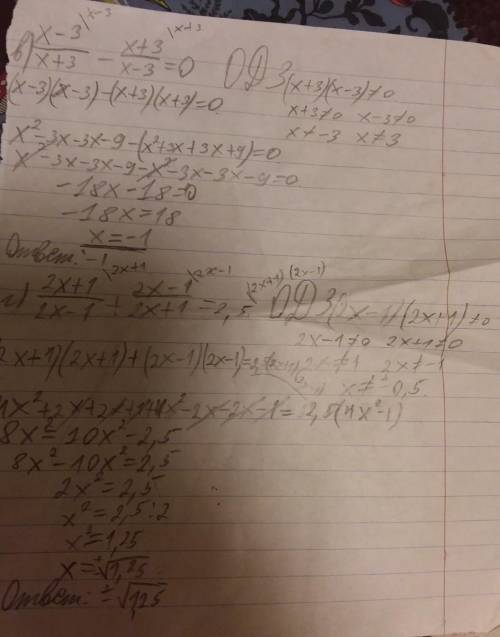 в) x-3 |x-3 / x+3 - x+3 |x+3 / x-3 = 0 ОДЗ (x+3)(x-3)≠0
(x-3)(x-3)-(x+3)(x+3)=0 x+3≠0 x-3≠0
x≠-3 x≠3
x²-3x-3x-9-(x²+3x+3x+9)=0
x²-3x-3x-9-x²-3x-3x-9=0
-18x-18=0
-18x=18
x=-1
Ответ: -1
г) 2x+1 |2x+1 / 2x-1 + 2x-1 |2x-1 / 2x+1 = 2,5 |(2x+1)(2x-1) ОДЗ (2x-1)(2x+1)≠0
2x-1≠0 2x+1≠0
(2x+1)(2x+1)+(2x-1)(2x-1)= 2x≠1 2x≠-1
x≠±0,5
4x²+2x+2x+1+4x²-2x-2x-1=2,5(4x²-1)
8x²=10x²-2,5
8x²-10x²=2,5
2x²=2,5
x²=2,5:2
x²=1,25
x=±√1,25
Ответ: ±√1,25